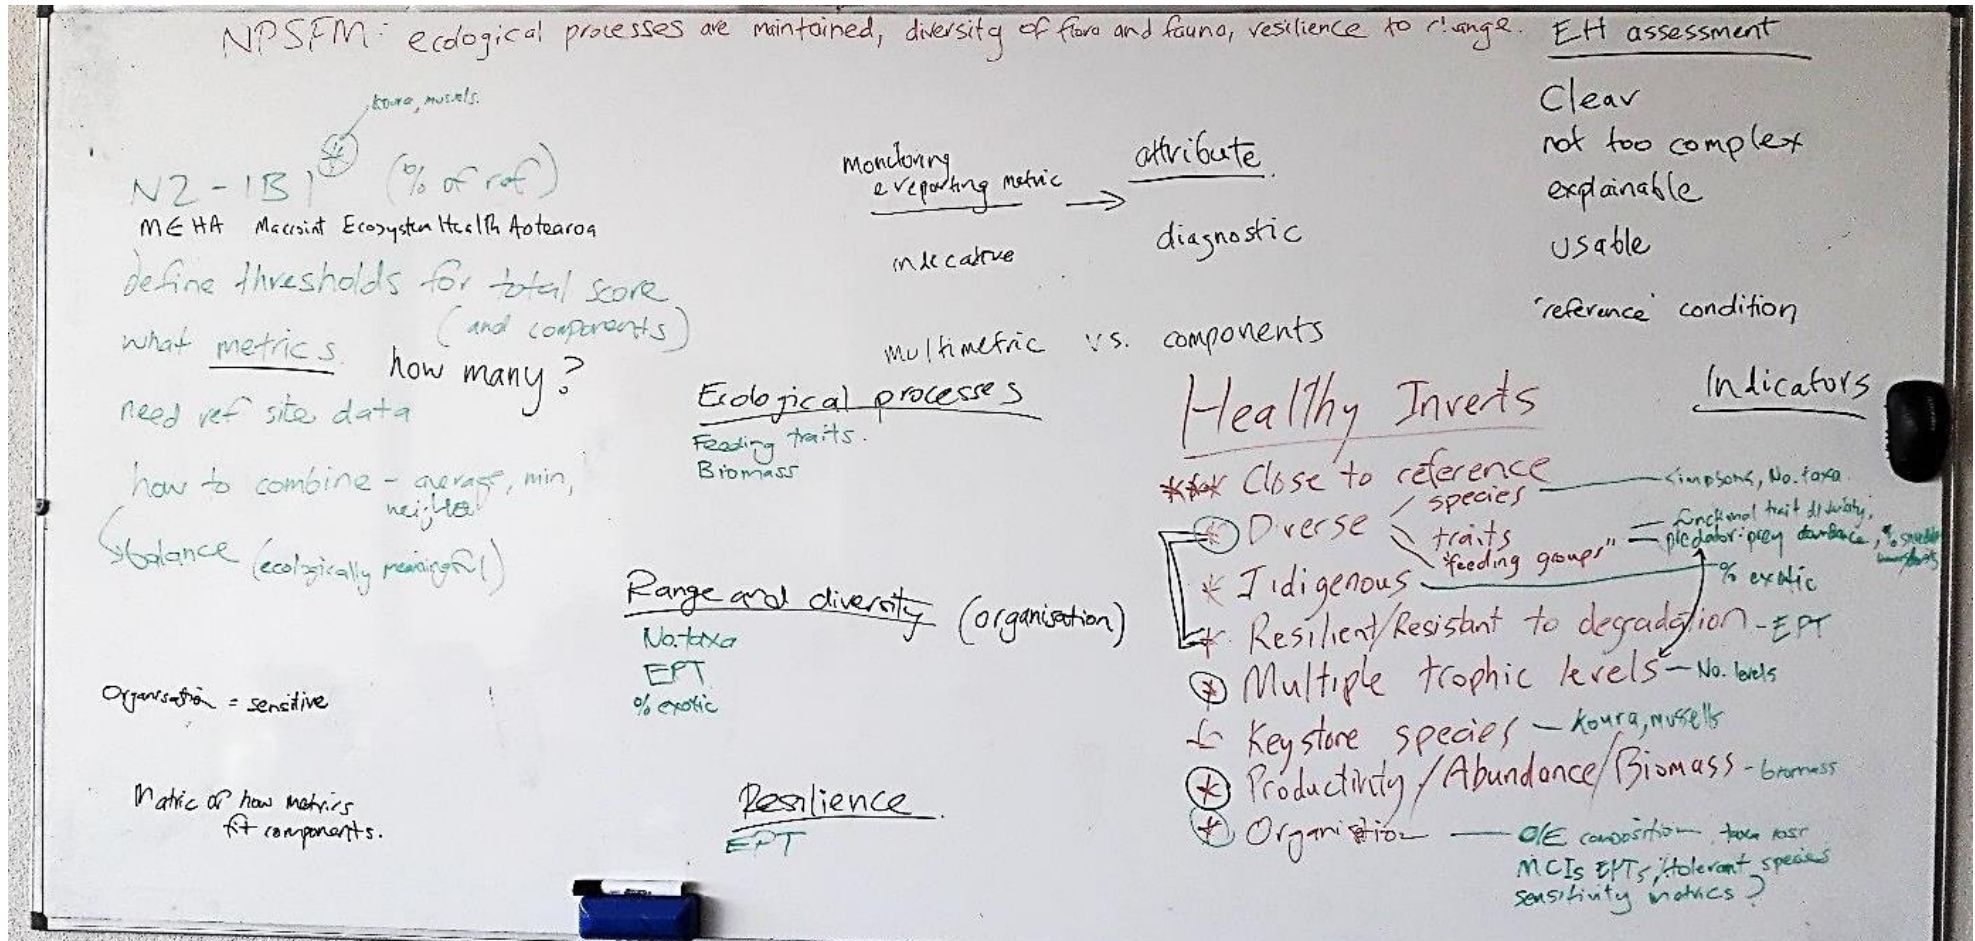 NPSFM: ecological processes are maintained, diversity of flora and fauna, resilience to change.
EH assessment
Clear
not too complex
explainable
usable
'reference' condition
koura, mussels.
NZ-IBI * (% of ref)
MEHA Macroint Ecosystem Health Aotearoa
define thresholds for total score
(and components)
what metrics.
how many?
need ref site data
how to combine - average, min,
balance (ecologically meaningful)
Organisation = sensitive
Matric of how metrics
fit components.
monitoring
& reporting metric → attribute
indicative
diagnostic
multimetric vs. components
Ecological processes
Feeding traits.
Biomass
Range and diversity (organisation)
No. taxa
EPT
% exotic
Resilience
EPT
Healthy Inverts
Indicators
*** Close to reference
* Diverse
species — Simpsons, No. taxa
traits — functional trait diversity,
"feeding groups" — predator-prey
* Indigenous — % exotic
* Resilient/Resistant to degradation - EPT
* Multiple trophic levels - No. levels
Keystone species - Koura, mussells
* Productivity/Abundance/Biomass - biomass
* Organisation — O/E composition taxa
MCIs EPTs, tolerant species
sensitivity metrics?